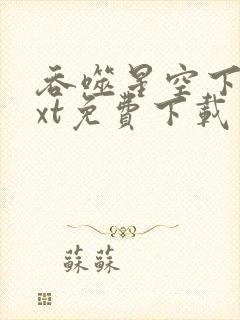 吞噬星空下
xt免費下載
蘇蘇